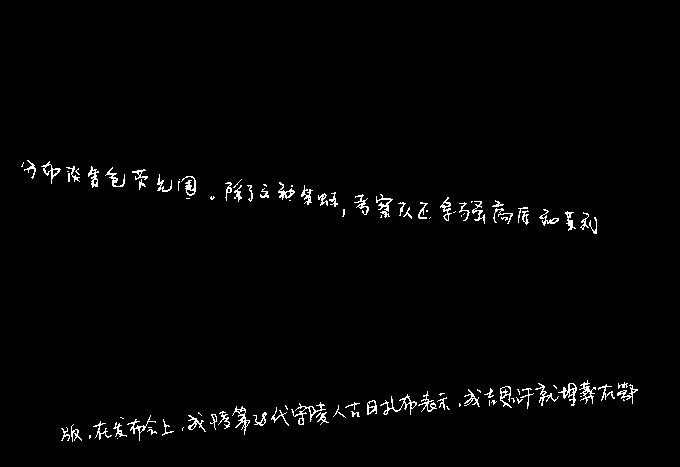 分布淡青色荧光圈。除了这种蚯蚓,考察队还在强高压和黄利
版,在发布会上,成陵第38代守陵人古日扎布表示,成吉思汗就埋葬在鄂